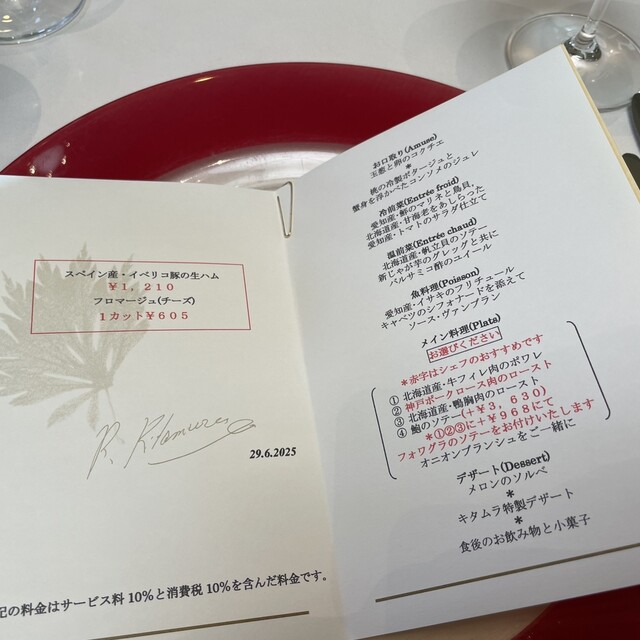 スペイン産・イベリコ豚の生ハム
￥１，２１０
フロマージュ(チーズ)
１カット￥６０５
R. Kitamura
29.6.2025
記の料金はサービス料 10%と消費税 10%を含んだ料金です。
お口取り(Amuse)
玉葱と卵のコクチエ
*
桃の冷製ポタージュと
蟹身を浮かべたコンソメのジュレ
冷前菜(Entrée froid)
愛知産・鯵のマリネと鳥貝,
北海道産・甘海老をあしらった
愛知産・トマトのサラダ仕立て
温前菜(Entrée chaud)
北海道産・帆立貝のソテー
新じゃが芋のグレッグと共に
バルサミコ酢のユイール
魚料理(Poisson)
愛知産・イサキのフリチュール
キャベツのシフォナードを添えて
ソース・ヴァンブラン
メイン料理(Plats)
お選びください
*赤字はシェフのおすすめです
① 北海道産・牛フィレ肉のポワレ
② 神戸ポークロース肉のロースト
③ 北海道産・鴨胸肉のロースト
④ 鮑のソテー(＋￥３，６３０)
*①②③に＋￥９６８にて
フォワグラのソテーをお付けいたします
オニオンブランシュをご一緒に
デザート(Dessert)
メロンのソルベ
*
キタムラ特製デザート
*
食後のお飲み物と小菓子